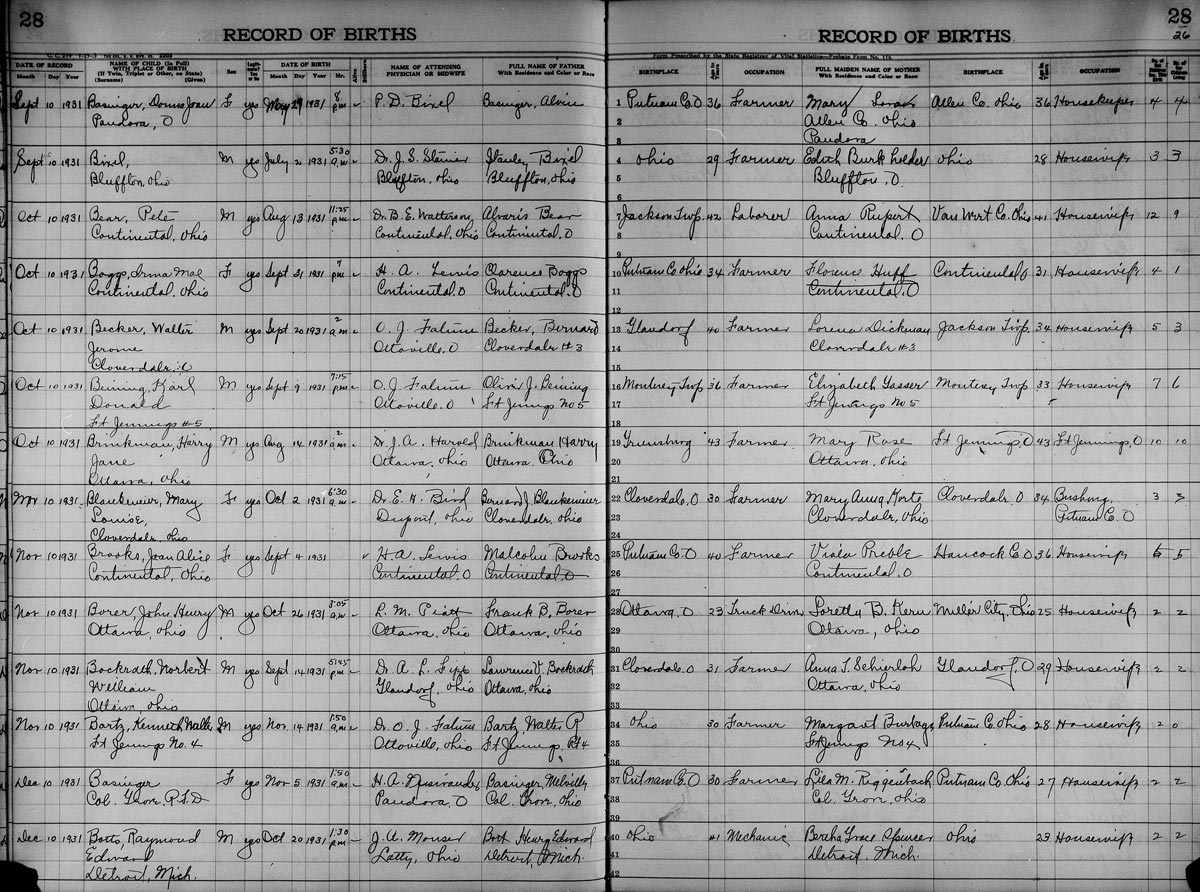 28
RECORD OF BIRTHS
DATE OF RECORD
NAME OF CHILD (In Full)
WITH PLACE OF BIRTH
(If Twin, Triplet or Other, so State)
(Surname) (Given)
Sex
DATE OF BIRTH
NAME OF ATTENDING
PHYSICIAN OR MIDWIFE
FULL NAME OF FATHER
With Residence and Color or Race
Month Day Year
Month Day Year Hr.
Sept 10 1931 Basinger, Donna Jean F yes May 29 1931 8 p.m P. D. Bixel Basinger, Alvin
Pandora, O
Sept 10 1931 Bixel, M yes July 2 1931 5:30 a.m Dr. J. S. Steiner Stanley Bixel
Bluffton, Ohio Bluffton, Ohio Bluffton, Ohio
Oct 10 1931 Bear, Pete M yes Aug 13 1931 11:25 p.m Dr. B. E. Watterson, Alvaris Bear
Continental, Ohio Continental, Ohio Continental, O
Oct 10 1931 Boggs, Irma Mae F yes Sept 31 1931 7 p.m H. A. Lewis Clarence Boggs
Continental, Ohio Continental, O Continental, O
Oct 10 1931 Becker, Walter M yes Sept 20 1931 2 a.m O. J. Fatum Becker, Bernard
Jerome Ottoville, O Cloverdale #3
Cloverdale, O
Oct 10 1931 Beining, Karl M yes Sept 9 1931 7:15 p.m O. J. Fatum Oliver J. Beining
Donald Ottoville, O Ft Jennings No 5
Ft Jennings #5
Oct 10 1931 Brinkman, Harry M yes Aug 14 1931 2 a.m Dr. J. A. Harold Brinkman Harry
Jane Ottawa, Ohio Ottawa, Ohio
Ottawa, Ohio
Nov 10 1931 Blankemeier, Mary F yes Oct 2 1931 6:30 a.m Dr. E. H. Bird Bernard J. Blankemeier
Louise, Dupont, Ohio Cloverdale, Ohio
Cloverdale, Ohio
Nov 10 1931 Brooks, Joan Alice F yes Sept 4 1931 H. A. Lewis Malcolm Brooks
Continental, Ohio Continental, O Continental, O
Nov 10 1931 Borer, John Henry M yes Oct 26 1931 3:05 a.m L. M. Piatt Frank B. Borer
Ottawa, Ohio Ottawa, Ohio Ottawa, Ohio
Nov 10 1931 Bockrath, Norbert M yes Sept 14 1931 5:45 p.m Dr. A. L. Lawrence V. Bockrath
William Glandorf, Ohio Ottawa, Ohio
Ottawa, Ohio
Nov 10 1931 Bartz, Kenneth Walter M yes Nov. 14 1931 1:50 a.m Dr. O. J. Fatum Bartz, Walter R
Ft Jennings No. 4 Ottoville, Ohio Ft Jennings, Rt 4
Dec 10 1931 Basinger F yes Nov 5 1931 1:50 a.m H. A. Basinger, Melville
Col. Grove R.F.D Pandora, O Col. Grove, Ohio
Dec 10 1931 Botts, Raymond M yes Oct 20 1931 1:30 p.m J. A. Mouser Bott Henry Edward
Edward Latty, Ohio Detroit, Mich.
Detroit, Mich.
28
26
RECORD OF BIRTHS
Form Prescribed by the State Registrar of Vital Statistics
BIRTHPLACE
OCCUPATION
FULL MAIDEN NAME OF MOTHER
With Residence and Color or Race
BIRTHPLACE
OCCUPATION
1 Putnam Co. O 36 Farmer Mary Allen Co. Ohio 36 Housekeeper 4 4
2 Allen Co. Ohio
3 Pandora
4 Ohio 29 Farmer Edith Burkholder Ohio 28 Housewife 3 3
5 Bluffton, O.
6
7 Jackson Twp. 42 Laborer Anna Rupert Van Wert Co. Ohio 41 Housewife 12 9
8 Continental, O
9
10 Putnam Co Ohio 34 Farmer Florence Huff Continental O 31 Housewife 4 1
11 Continental, O
12
13 Glandorf 40 Farmer Lorena Dickman Jackson Twp. 34 Housewife 5 3
14 Cloverdale #3
15
16 Monterey Twp 36 Farmer Elizabeth Yasser Monterey Twp 33 Housewife 7 6
17 Ft Jennings No 5
18
19 Greensburg 43 Farmer Mary Rose Ft Jennings, O 43 Ft Jennings, O 10 10
20 Ottawa, Ohio
21
22 Cloverdale, O 30 Farmer Mary Anna Horte Cloverdale O 34 Bushong, 3 3
23 Cloverdale, Ohio Putnam C. O
24
25 Putnam C. O 40 Farmer Preble Hancock C. O 36 Housewife 5 5
26 Continental, O
27
28 Ottawa, O 23 Truck Driver Loretta B. Kern Miller City, Ohio 25 Housewife 2 2
29 Ottawa, Ohio
30
31 Cloverdale, O 31 Farmer Anna T. Schierloh Glandorf, O 29 Housewife 2 2
32 Ottawa, Ohio
33
34 Ohio 30 Farmer Margaret Putnam Co. Ohio 28 Housewife 2 0
35 Ft Jennings No 4
36
37 Putnam C. O 30 Farmer Lila M. Riggenbach Putnam Co. Ohio 27 Housewife 2 2
38 Col. Grove, Ohio
39
40 Ohio 41 Mechanic Bertha Grace Spencer Ohio 23 Housewife 2 2
41 Detroit, Mich.
42